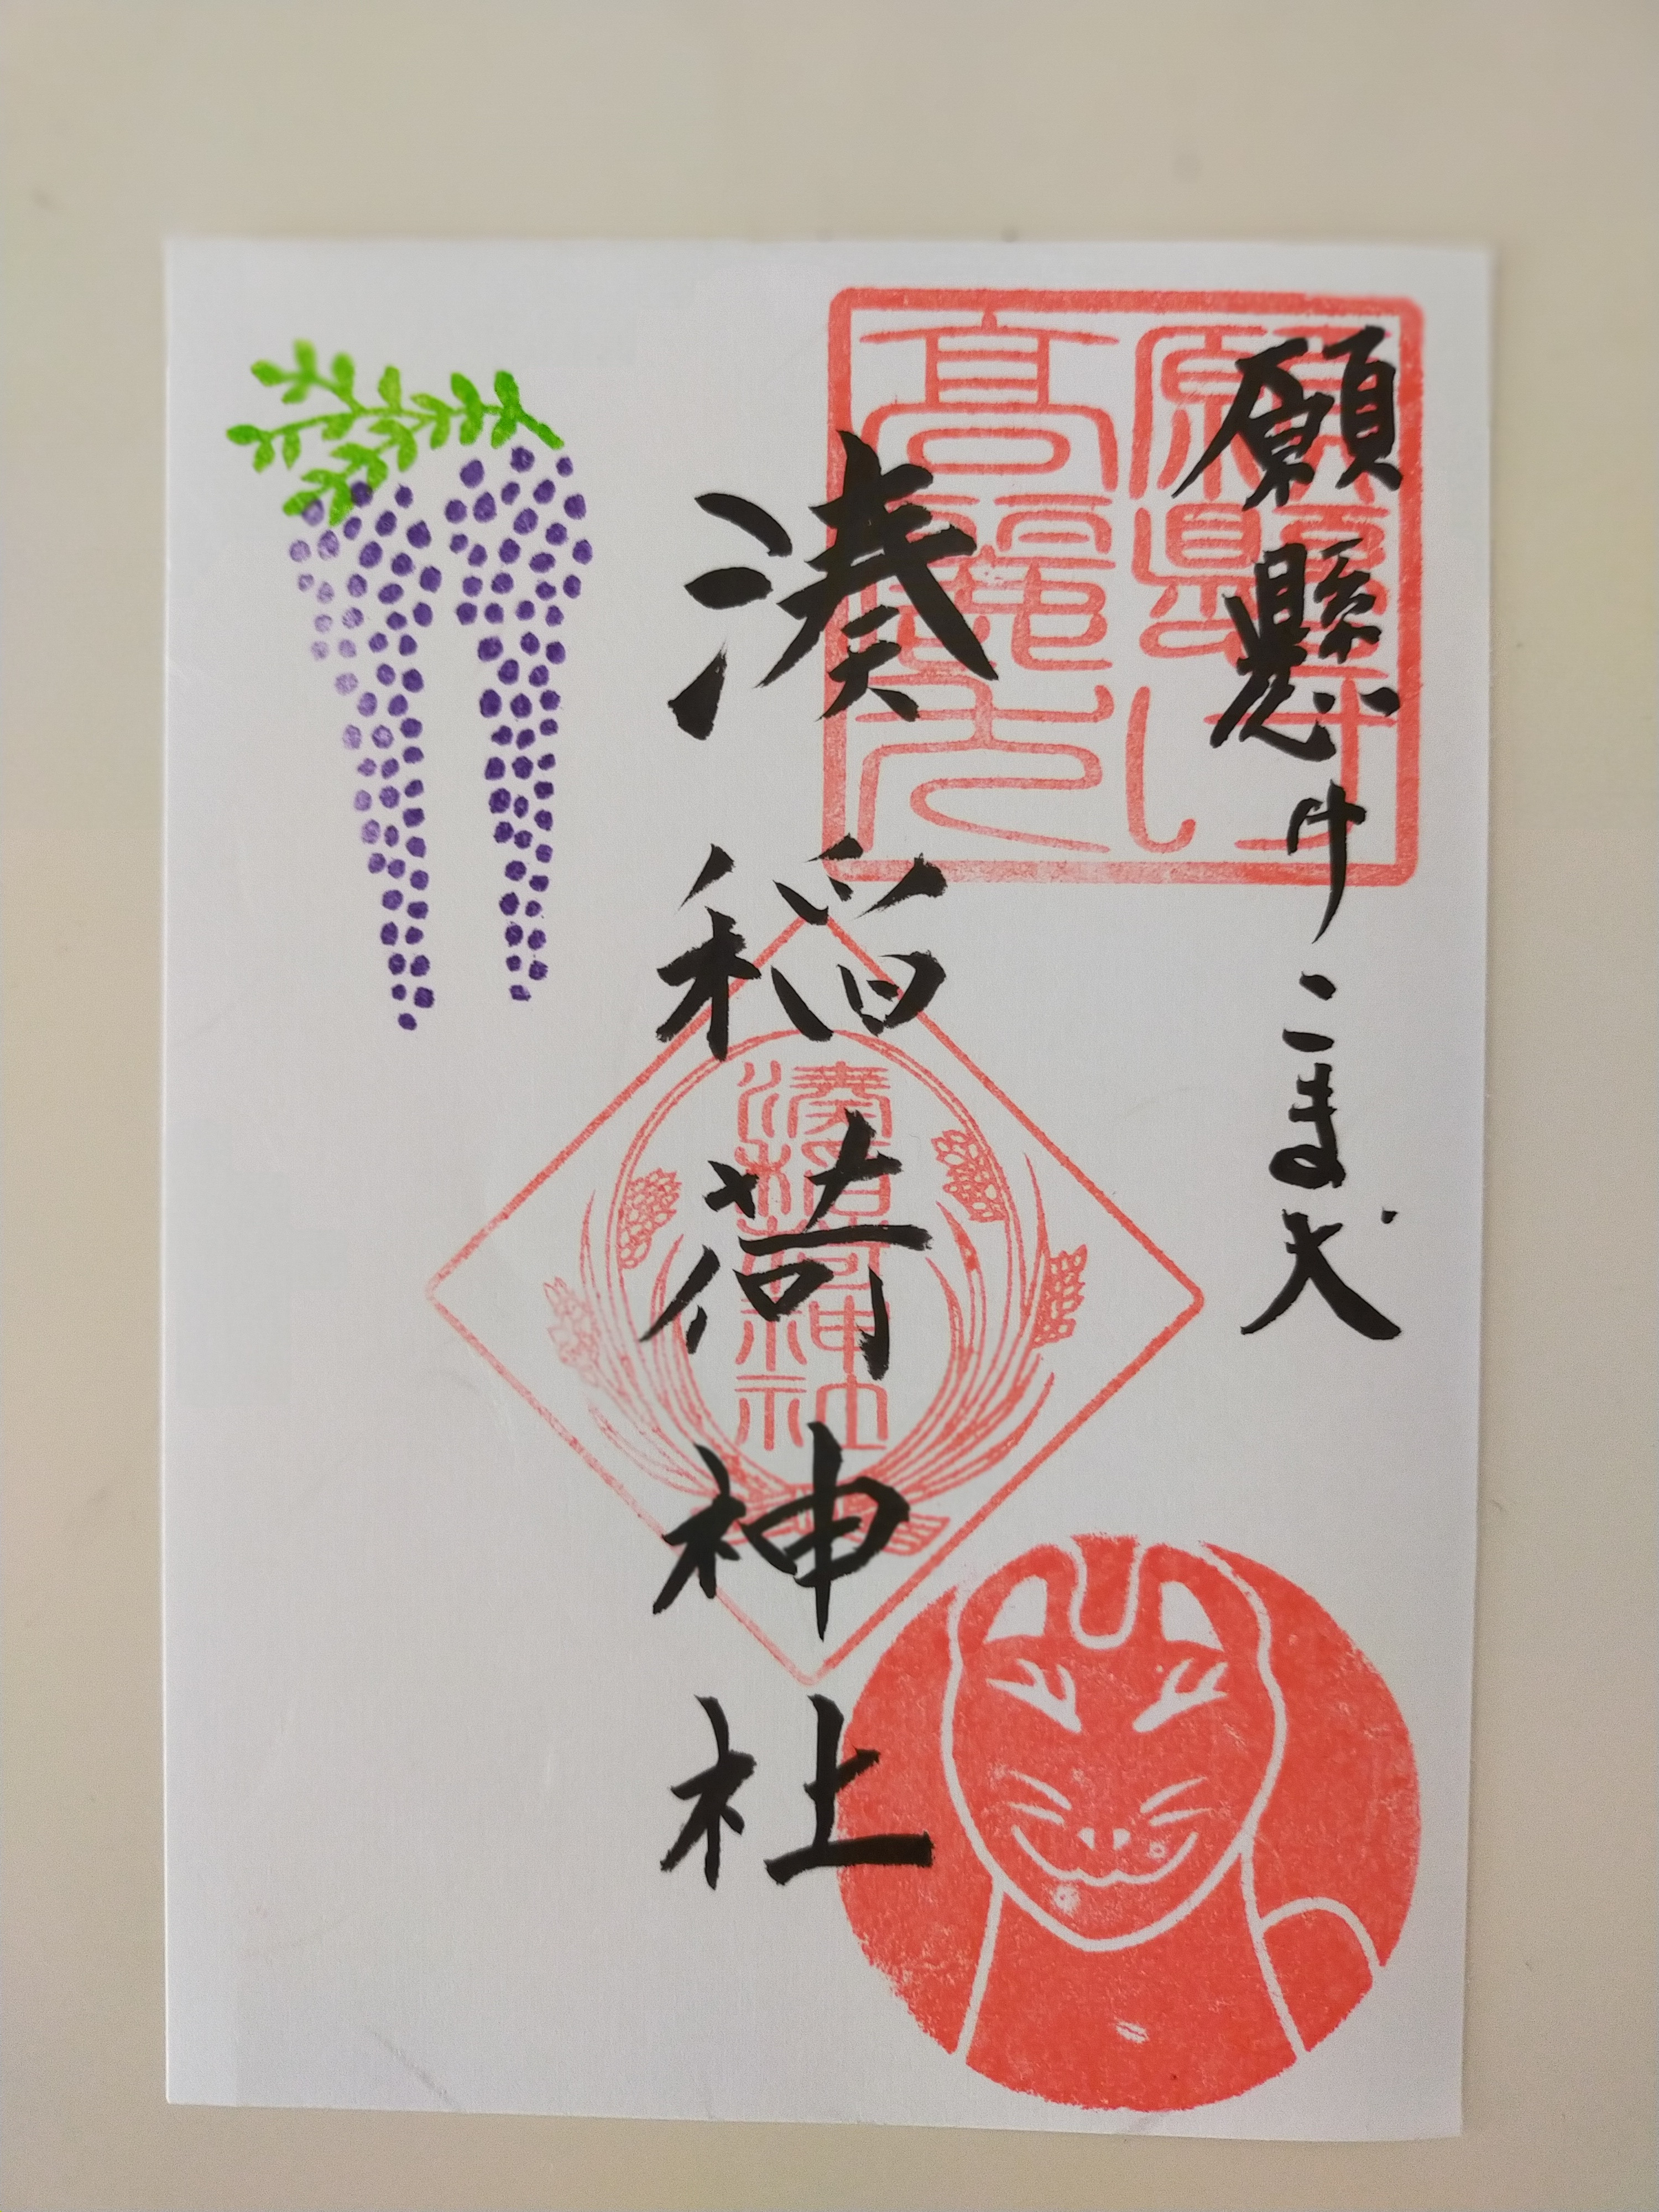 願懸けこま犬
湊稲荷神社
願懸け
高麗犬
湊稲荷
神社